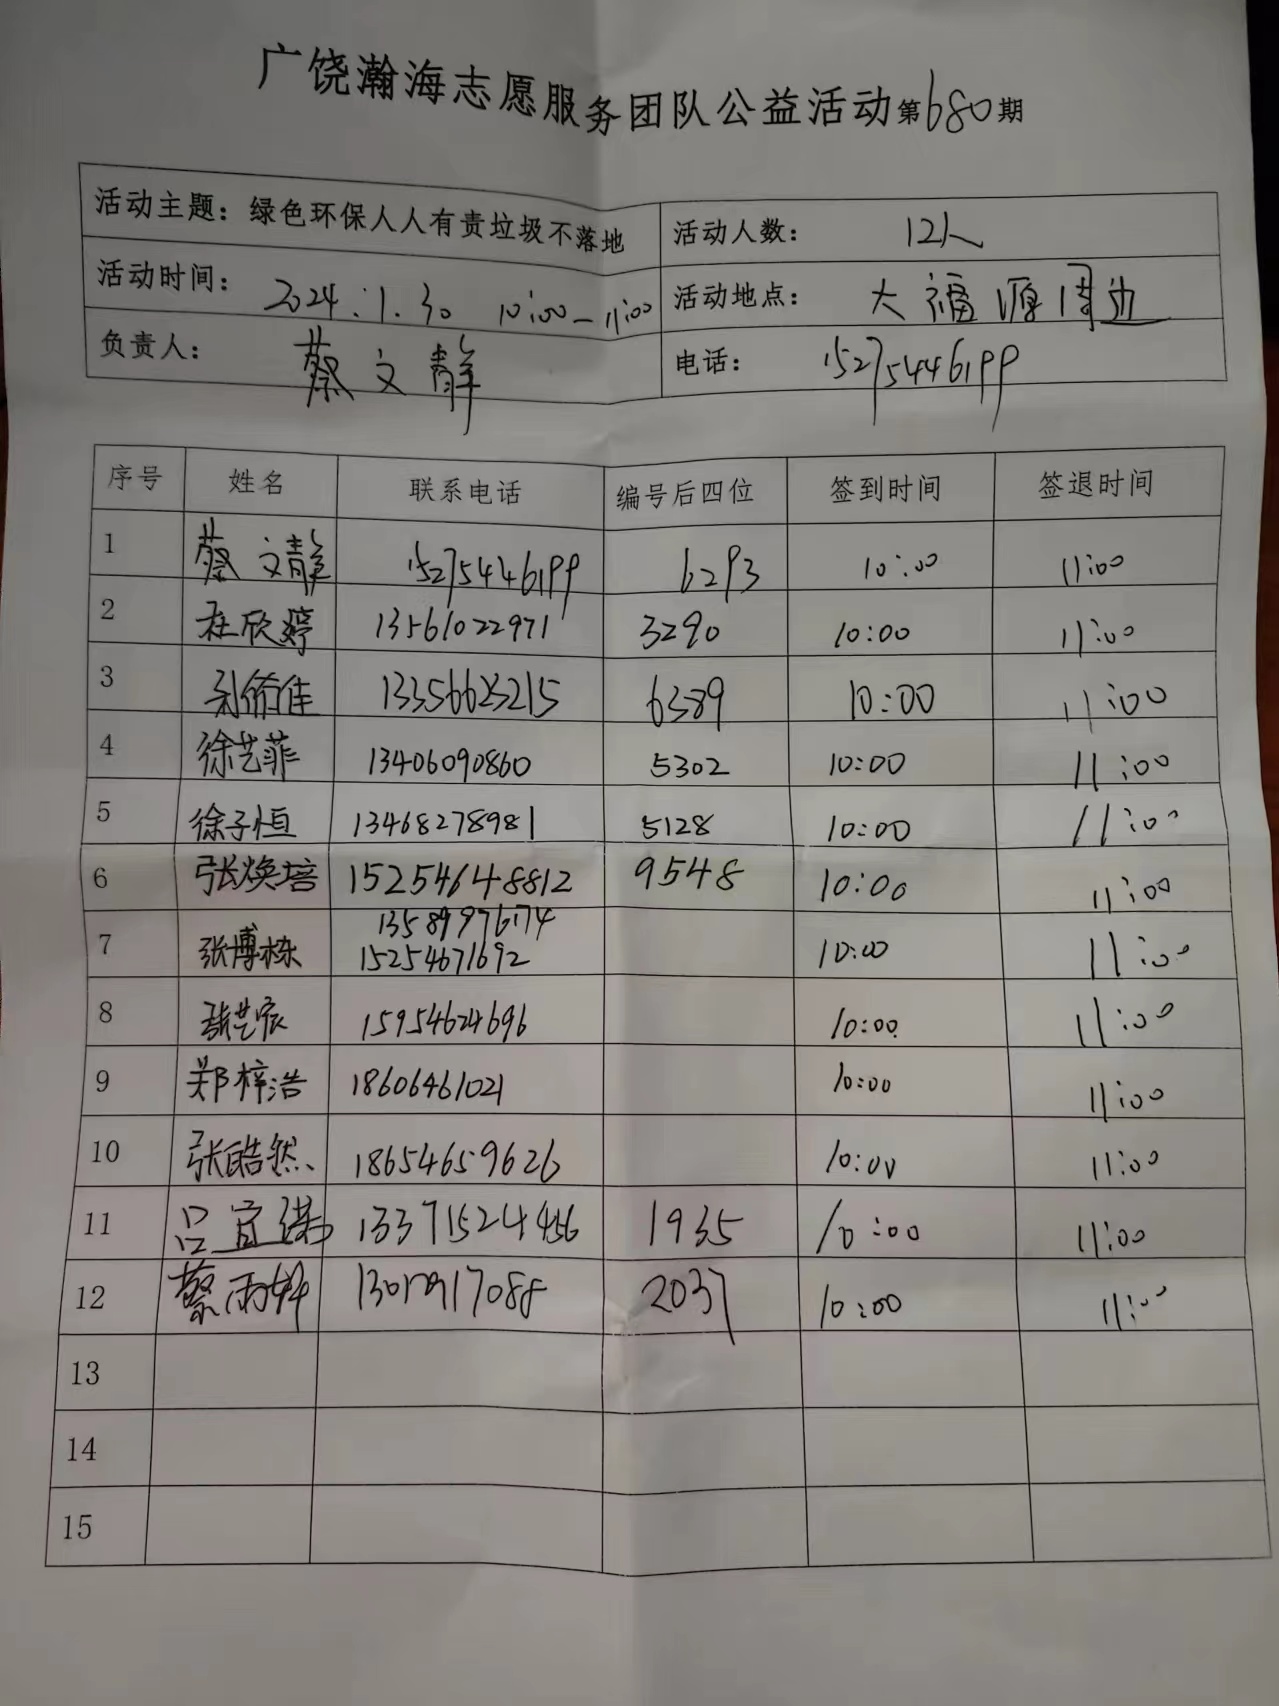 广饶瀚海志愿服务团队公益活动第680期
活动主题：绿色环保人人有责垃圾不落地 活动人数： 12人
活动时间： 2024.1.30 10:00-11:00 活动地点： 大福源周边
负责人： 蔡文静 电话： 15275446199
序号 姓名 联系电话 编号后四位 签到时间 签退时间
1 蔡文静 15275446199 6293 10:00 11:00
2 杜欣婷 13561022971 3290 10:00 11:00
3 佳 6389 10:00 11:00
4 徐艺菲 13406090860 5302 10:00 11:00
5 徐子恒 13468278981 5128 10:00 11:00
6 张焕培 15254648812 9548 10:00 11:00
13589976174
7 张博栋 15254671692 10:00 11:00
8 张艺宸 15954624696 10:00 11:00
9 郑梓浩 18606461021 10:00 11:00
10 张皓然 18654659626 10:00 11:00
11 吕宜诺 13371524456 1935 10:00 11:00
12 蔡雨 2037 10:00 11:00
13
14
15